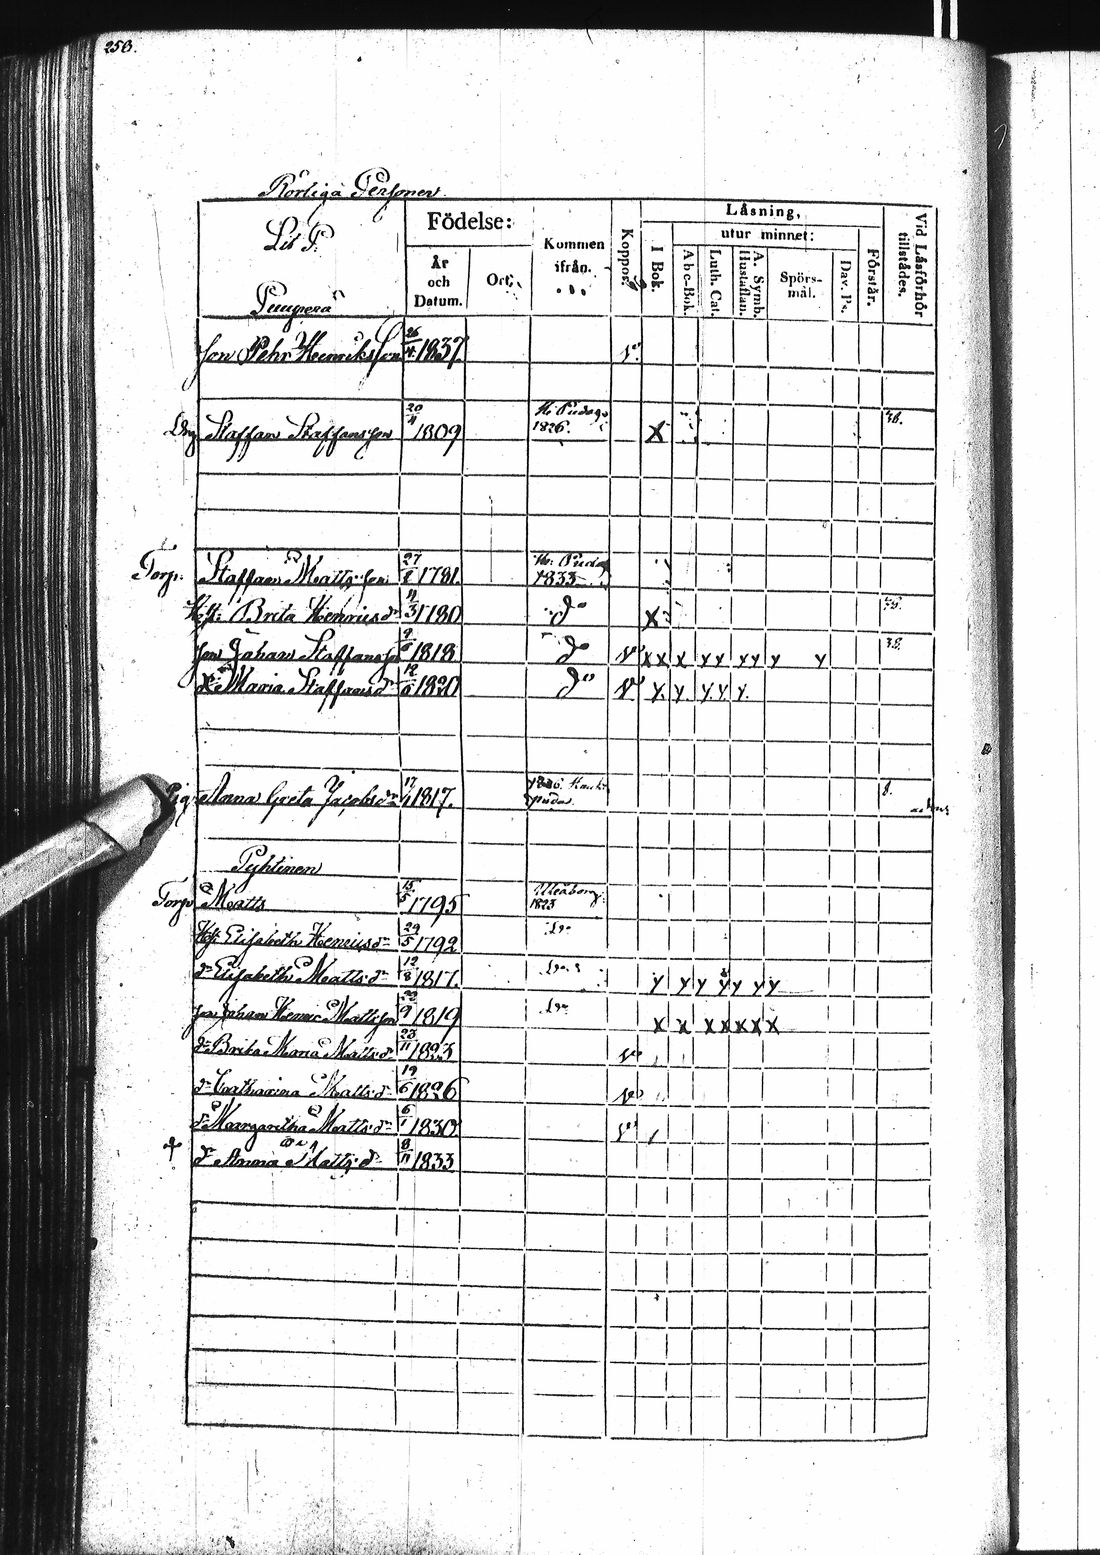 258.
Rörliga Personer
Litt P.
Födelse:
År och Datum.
Ort.
Kommen ifrån.
Koppor.
Läsning,
I Bok.
utur minnet:
Abc-Bok.
Luth. Cat.
A. Symb. Hustaflan.
Spörs-mål.
Dav. Ps.
Förstår.
Vid Läsförhör tillstädes.
Puuperä
Son Pehr Henriksson 26/4 1837 v.
Dreng Staffan Staffansson 20/11 1809 1826. X 38.
Torp. Staffan Matts son 27/8 1781 1833
Hust: Brita Henricsdr 11/3 1780 do X
son Johan Staffansson 9/ 1818 do v x x x y y y y y y 38.
dr Maria Staffansdr 12/ 1820 do v y. y. y y. y.
Pig: Anna Greta Jacobsdr 17/ 1817. 8.
Pyhtinen
Torp Matts 15/5 1795 Uleåborg 1823
Hust: Elisabeth Henricsdr 29/5 1792 do
dr Elisabeth Mattsdr 12/8 1817. do y y y y y y y
son Johan Henric Mattsson 22/9 1819 do x x x x x x x
dr Brita Maria Mattsdr 23/11 1823 v
dr Catharina Mattsdr 19/6 1826 v
dr Margaretha Mattsdr 6/1 1830 v
† dr Anna Mattsdr 8/11 1833